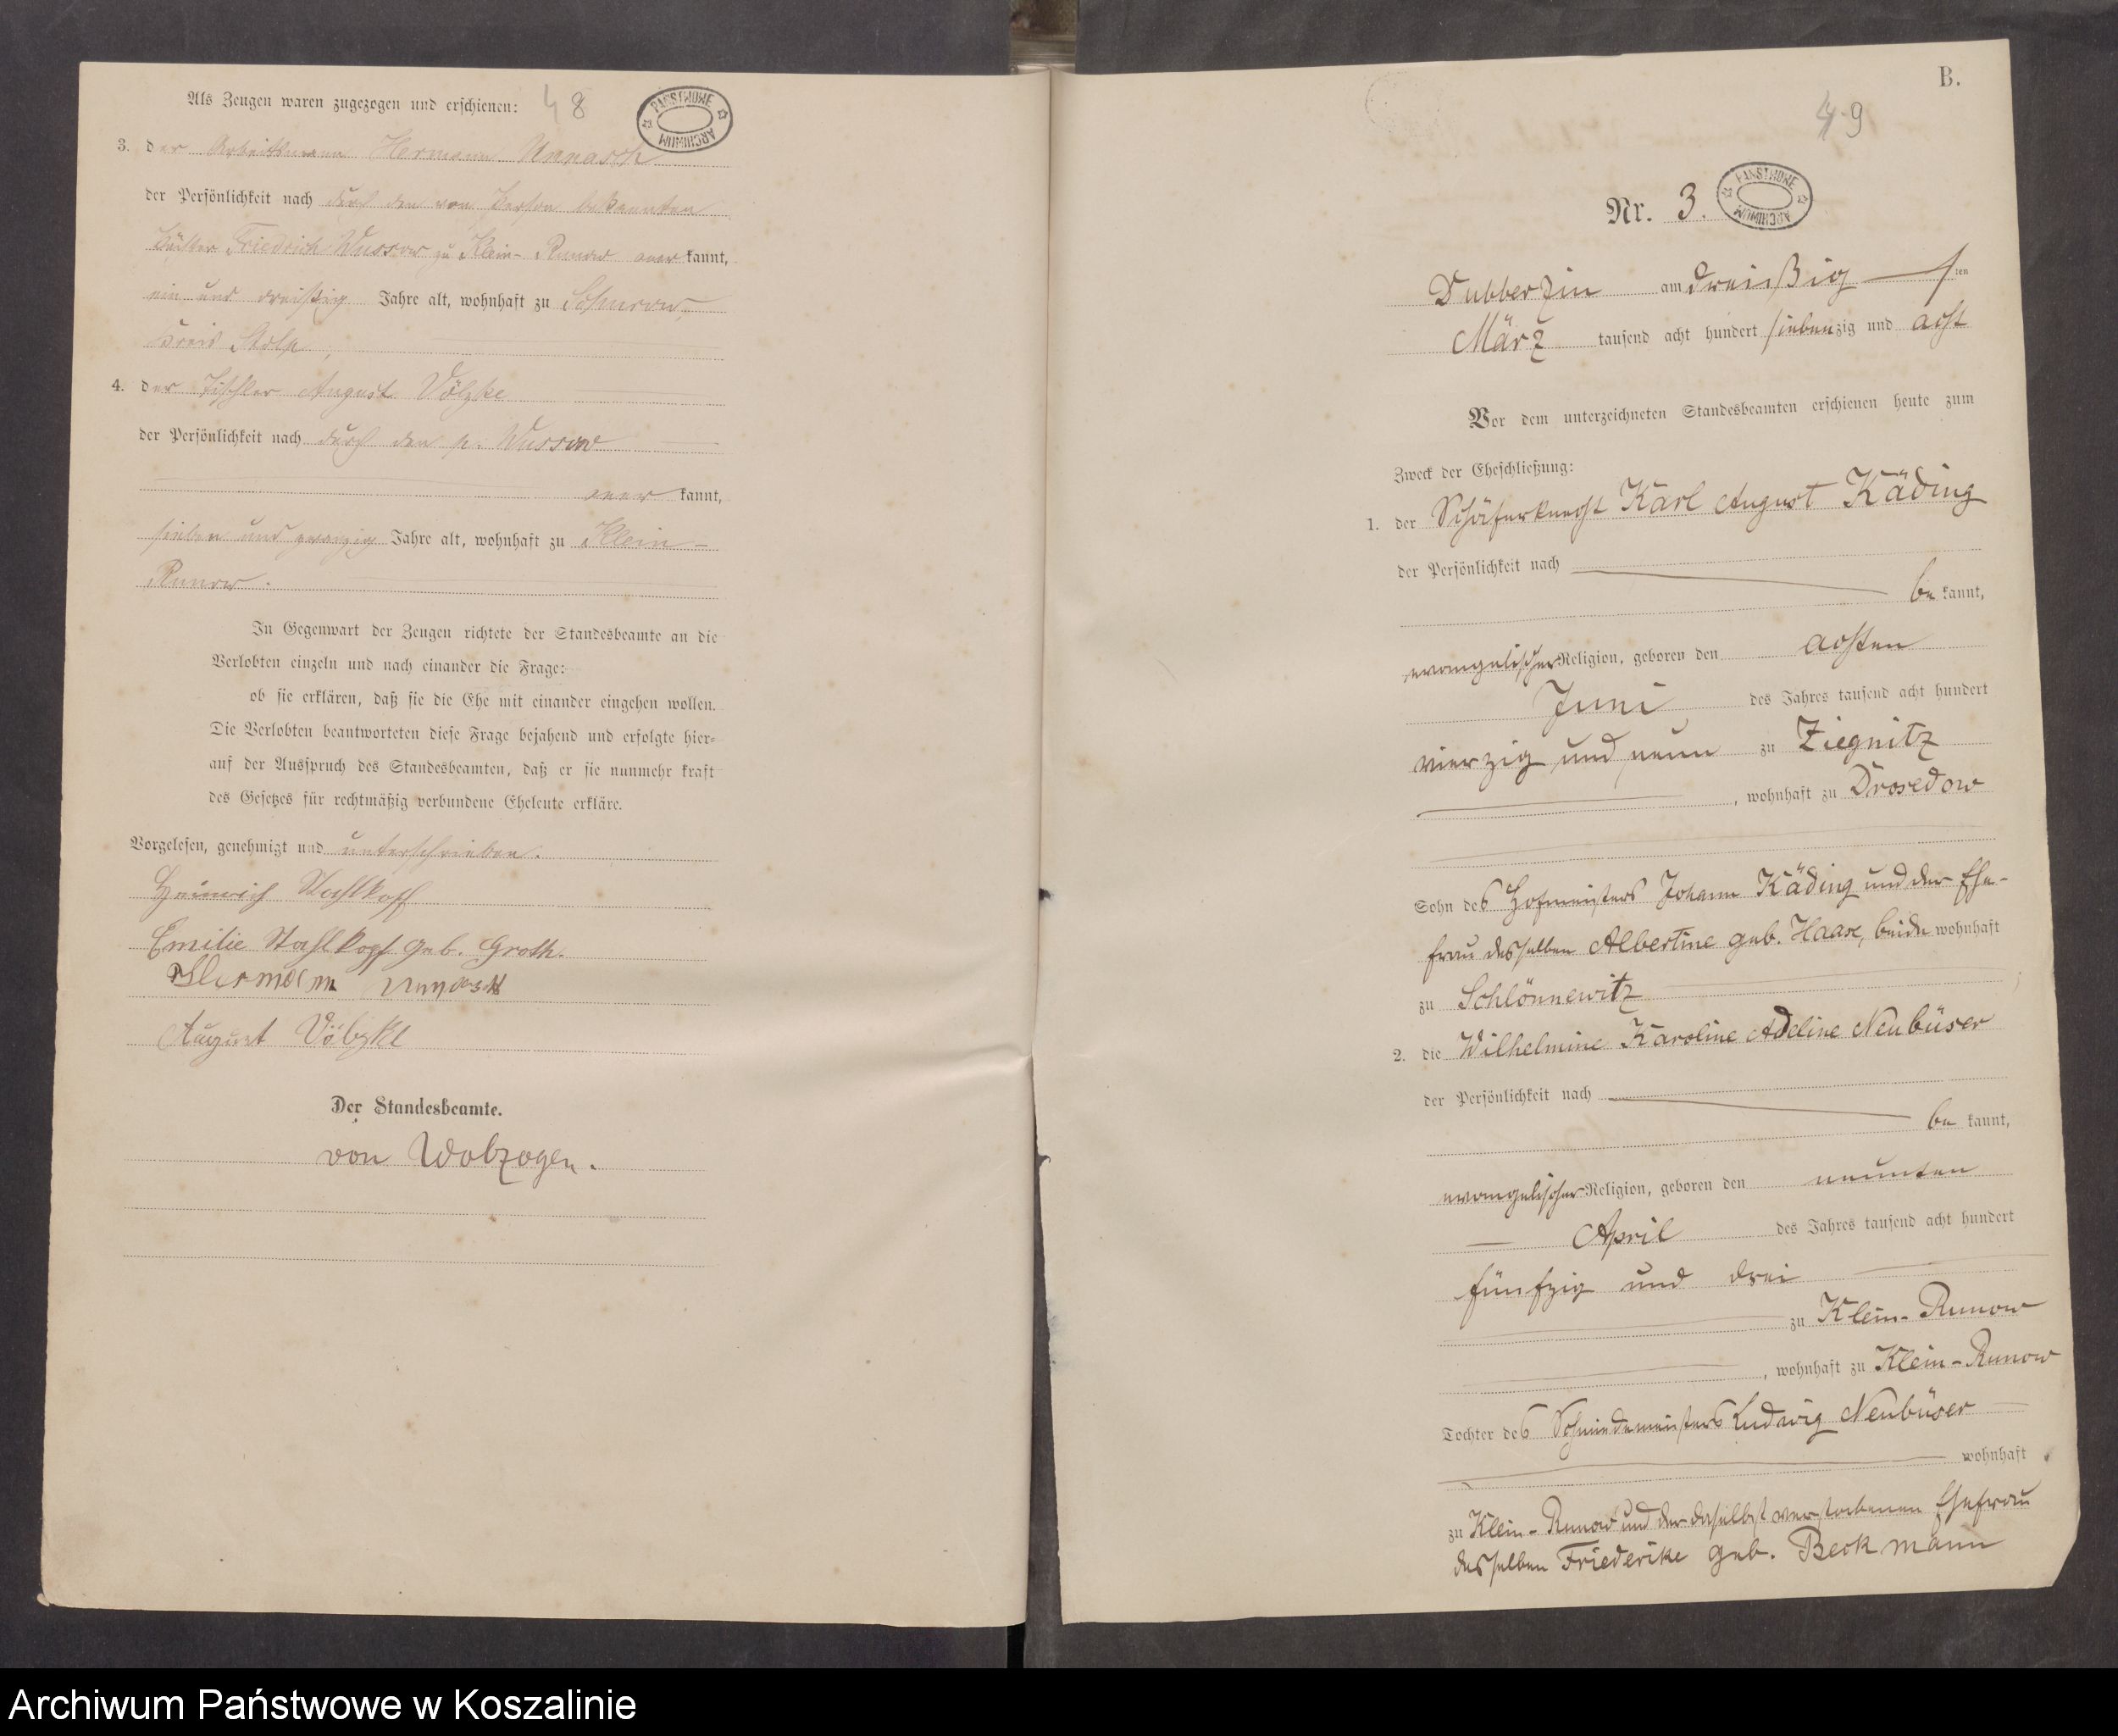 Als Zeugen waren zugezogen und erschienen: 48
PAŃSTWOWE ARCHIWUM
3. der Arbeitsmann Hermann Unnasch
der Persönlichkeit nach durch den von Person bekannten
Friedrich Wussow zu Klein-Runow anerkannt,
ein und dreißig Jahre alt, wohnhaft zu
Kreis Stolp,
4. der Tischler August Völzke
der Persönlichkeit nach durch den p. Wussow
anerkannt,
sieben und zwanzig Jahre alt, wohnhaft zu Klein-
Runow.
In Gegenwart der Zeugen richtete der Standesbeamte an die
Verlobten einzeln und nach einander die Frage:
ob sie erklären, daß sie die Ehe mit einander eingehen wollen.
Die Verlobten beantworteten diese Frage bejahend und erfolgte hier-
auf der Ausspruch des Standesbeamten, daß er sie nunmehr kraft
des Gesetzes für rechtmäßig verbundene Eheleute erkläre.
Vorgelesen, genehmigt und unterschrieben.
Heinrich Stahlkopf
Emilie Stahlkopf geb. Groth.
Hermann Unnasch
August Völzke
Der Standesbeamte.
von Wolzogen.
B.
49
Nr. 3.
PAŃSTWOWE ARCHIWUM
Dubberzin am dreißigsten
März tausend acht hundert siebenzig und acht
Vor dem unterzeichneten Standesbeamten erschienen heute zum
Zweck der Eheschließung:
1. der Schäferknecht Karl August Käding
der Persönlichkeit nach
bekannt,
evangelischer Religion, geboren den achten
Juni des Jahres tausend acht hundert
vierzig und neun zu Ziegnitz
, wohnhaft zu Drosedow
Sohn des Hofmeisters Johann Käding und der Ehe-
frau desselben Albertine geb. Haase, beide wohnhaft
zu Schlönnewitz
2. die Wilhelmine Karoline Adeline Neubüser
der Persönlichkeit nach
bekannt,
evangelischer Religion, geboren den neunten
April des Jahres tausend acht hundert
fünfzig und drei
zu Klein-Runow
, wohnhaft zu Klein-Runow
Tochter des Schmiedemeisters Ludwig Neubüser
wohnhaft
zu Klein-Runow und der daselbst verstorbenen Ehefrau
desselben Friederike geb. Beckmann
Archiwum Państwowe w Koszalinie